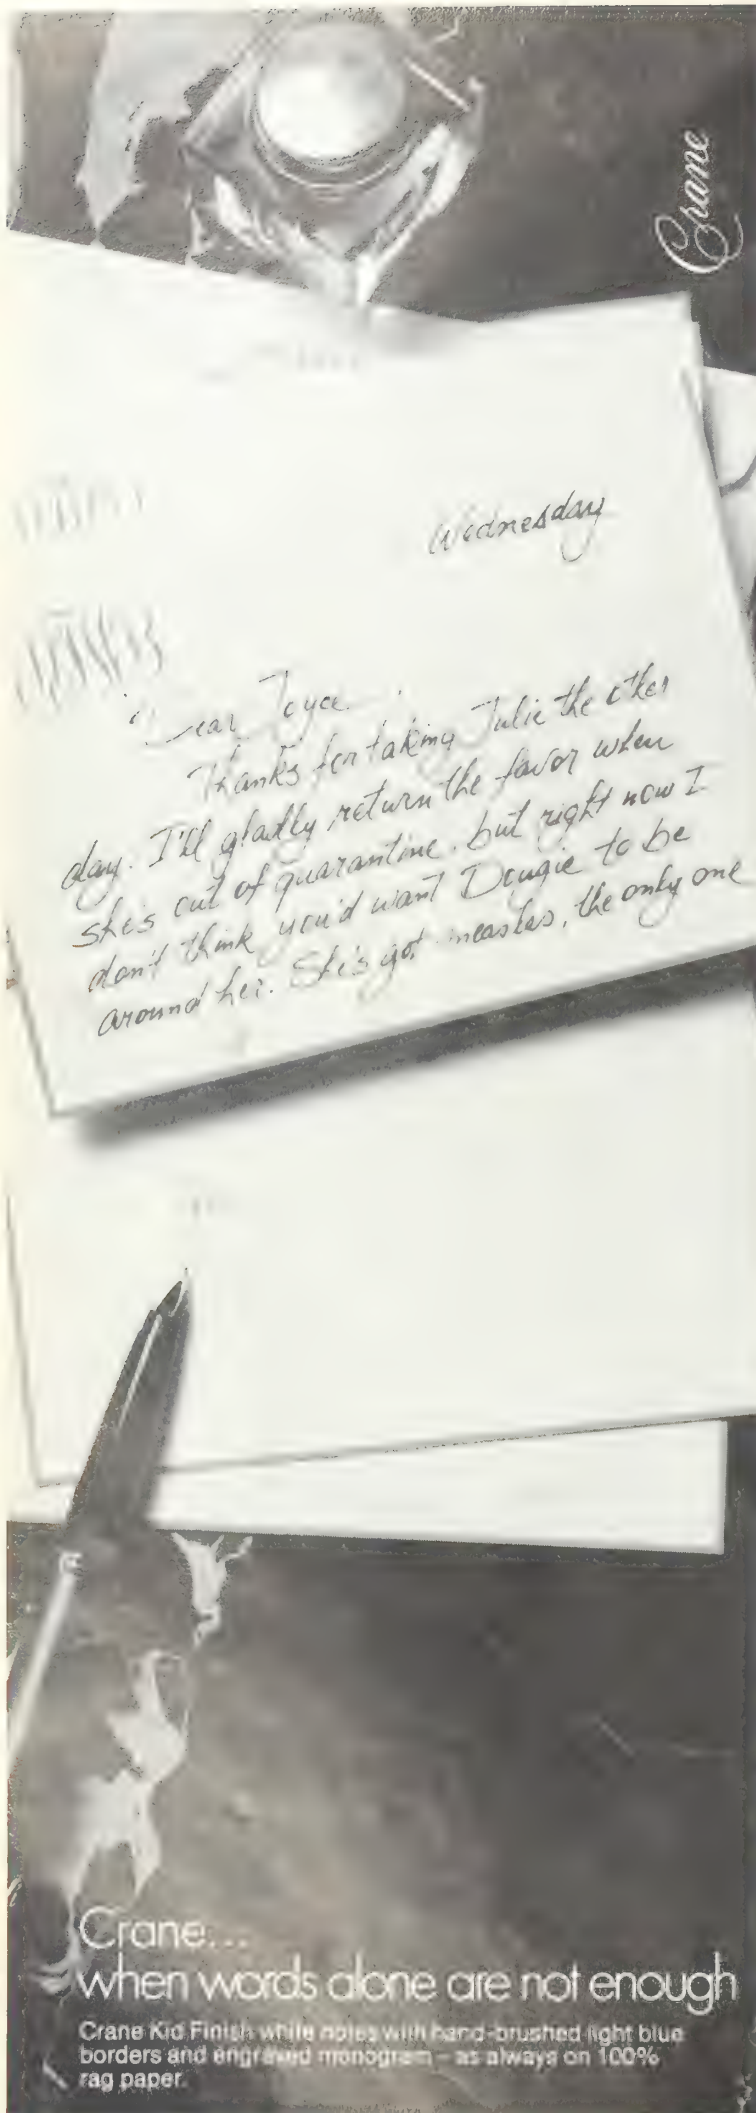 Crane
Wednesday
Dear Joyce
Thanks for taking Julie the other
day. I'll gladly return the favor when
she's out of quarantine, but right now I
don't think you'd want Dougie to be
around her. She's got measles, the only one
Crane...
when words alone are not enough
Crane Kid Finish white notes with hand-brushed light blue
borders and engraved monogram – as always on 100%
rag paper.